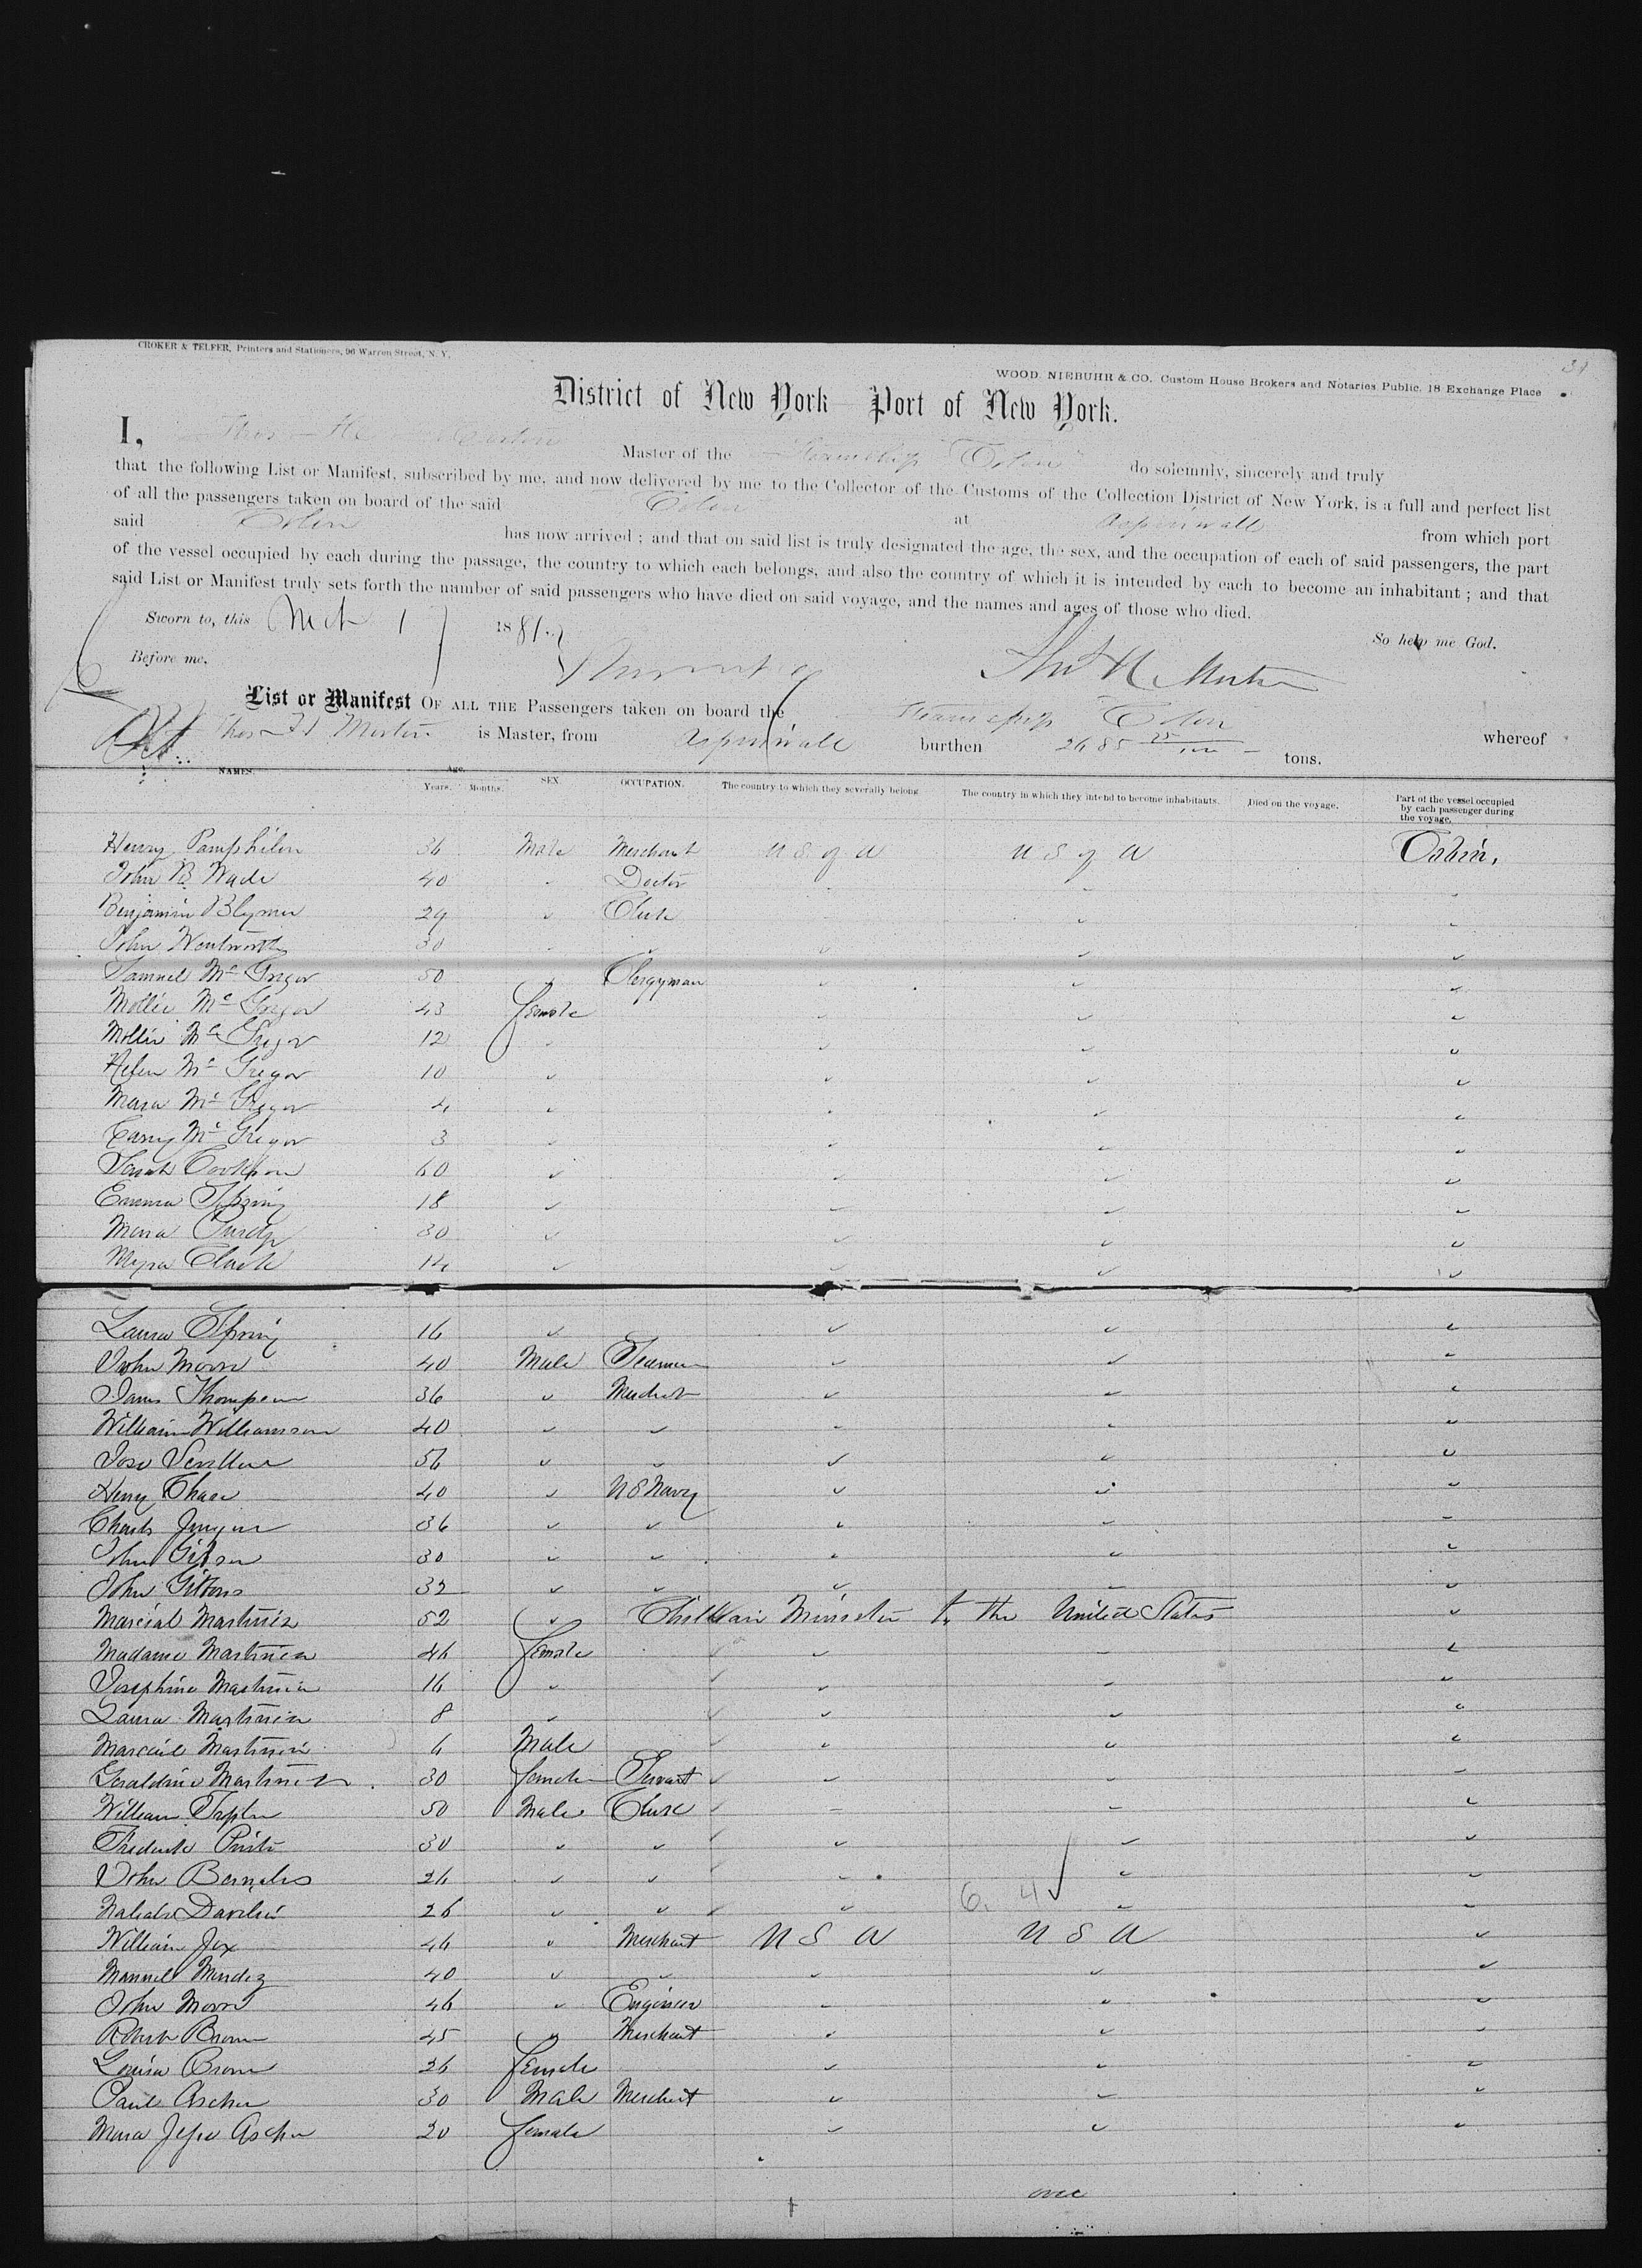 CROKER & TELFER, Printers and Stationers, 96 Warren Street, N. Y.
WOOD, NIEBUHR & CO. Custom House Brokers and Notaries Public, 18 Exchange Place
District of New York Port of New York.
I, Master of the Steamship Colon do solemnly, sincerely and truly
that the following List or Manifest, subscribed by me, and now delivered by me to the Collector of the Customs of the Collection District of New York, is a full and perfect list
of all the passengers taken on board of the said Colon at Aspinwall from which port
said Colon has now arrived; and that on said list is truly designated the age, the sex, and the occupation of each of said passengers, the part
of the vessel occupied by each during the passage, the country to which each belongs, and also the country of which it is intended by each to become an inhabitant; and that
said List or Manifest truly sets forth the number of said passengers who have died on said voyage, and the names and ages of those who died.
So help me God.
Sworn to, this Mch 1 1881.
Before me,
List or Manifest OF ALL THE Passengers taken on board the Steamship Colon whereof
Thos H Morton is Master, from Aspinwall burthen 2685 tons.
NAMES. Age. Years. Months. SEX. OCCUPATION. The country to which they severally belong. The country in which they intend to become inhabitants. Died on the voyage. Part of the vessel occupied by each passenger during the voyage.
Henry Pamphilon 36 Male Merchant U S of A U S of A Cabin,
John B Wade 40 Doctor
Benjamin Blymer 29 Clerk
John Wentworth 30
Samuel Mc Gregor 50 Clergyman
Mollie Mc Gregor 43 female
Mollie Mc Gregor 12
Helen Mc Gregor 10
Mc Gregor 4
Mc Gregor 3
Sarah 60
Emma Spring 18
Purdy 30
Myra Clark 14
Laura Spring 16
John Moore 40 Male Seaman
James Thompson 36 Merchant
William Williamson 40
Jose 56
Henry Chase 40 U S Navy
Charles 36
John Gibson 30
John Gibbons 32
Marcial Martinez 52 Chillian Minister to the United States
Madame Martinez 46 female
Josephine Martinez 16
Laura Martinez 8
Martinez 6 Male
Geraldine Martinez 30 female Servant
William 50 Male Clerk
Frederick 30
John 26
26
6. 4
William Jex 46 Merchant U S A U S A
Manuel Mendez 40
John Moore 46 Engineer
Robert Brown 45 Merchant
Louisa Brown 26 female
Paul Ascher 30 Male Merchant
Ascher 20 female
over